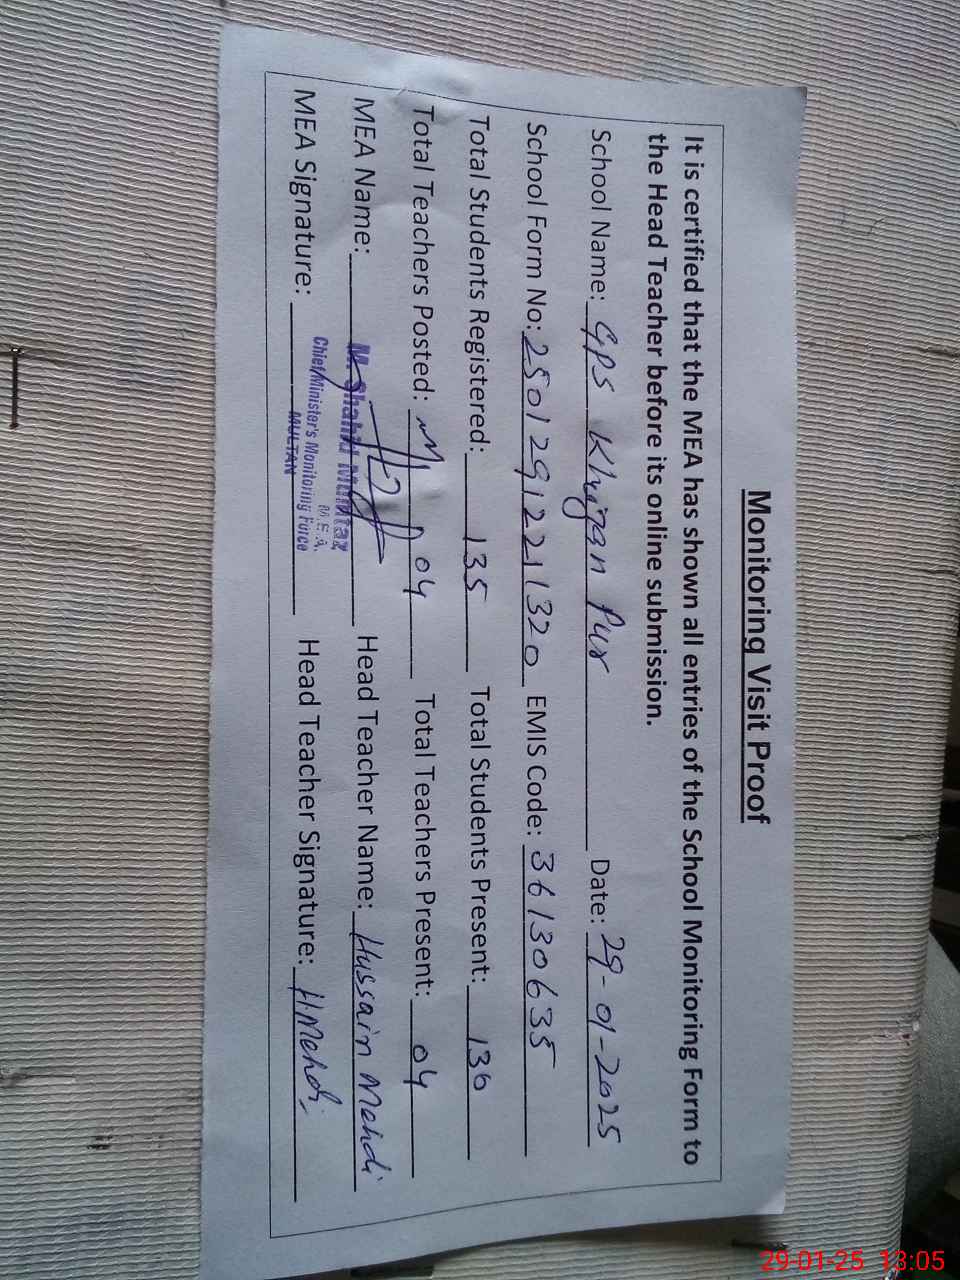 Monitoring Visit Proof
It is certified that the MEA has shown all entries of the School Monitoring Form to
the Head Teacher before its online submission.
School Name: GPS Pur Date: 29-01-2025
School Form No: 2501291221320 EMIS Code: 36130635
Total Students Registered: 135 Total Students Present: 130
Total Teachers Posted: 04 Total Teachers Present: 04
MEA Name: M. Shahid Mumtaz Head Teacher Name: Hussain Mehdi
M.E.A.
Chief Minister's Monitoring Force
MULTAN
MEA Signature: Head Teacher Signature: H.Mehdi
29-01-25 13:05